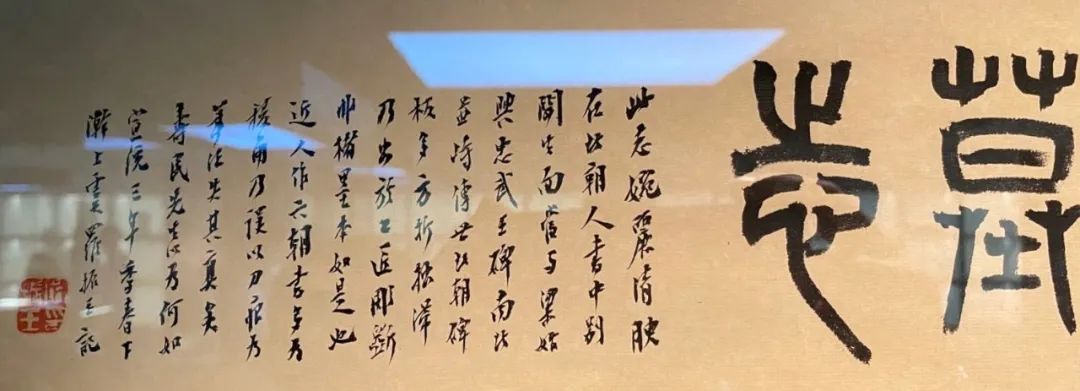 墓
志
此志婉麗清腴
在北朝人書中别
開生面當与梁始
興忠武王碑南北
並峙傳世北朝碑
版多方折滯
乃出於工匠雕斲
非楮墨本如是也
近人作六朝書多為
棱角乃誤以刀痕為
筆法失其真矣
壽民先生以為何如
宣統三年季春下
澣上虞羅振玉記